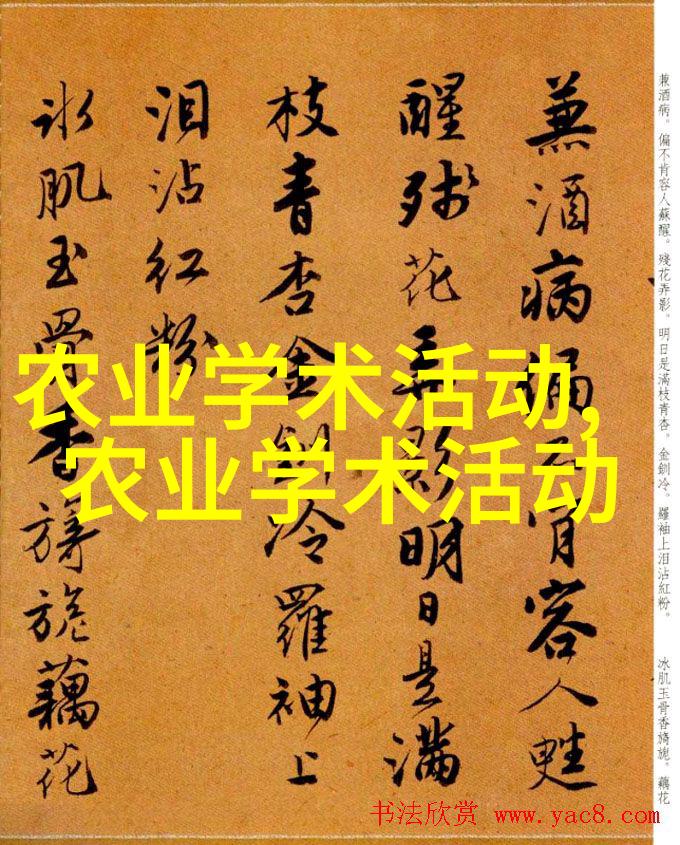 兼酒病偏不肯容人甦
醒殘花弄影明日是滿
枝青杏金釧冷羅袖上
泪沾紅粉
冰肌玉骨香旖旎藕花
兼酒病。偏不肯容人蘇醒。殘花弄影。明日是滿枝青杏。金釧冷。羅袖上泪沾紅粉。
冰肌玉骨香旖旎。藕花
农业学术活动,
农业学术活动
书法欣赏 www.yac8.com